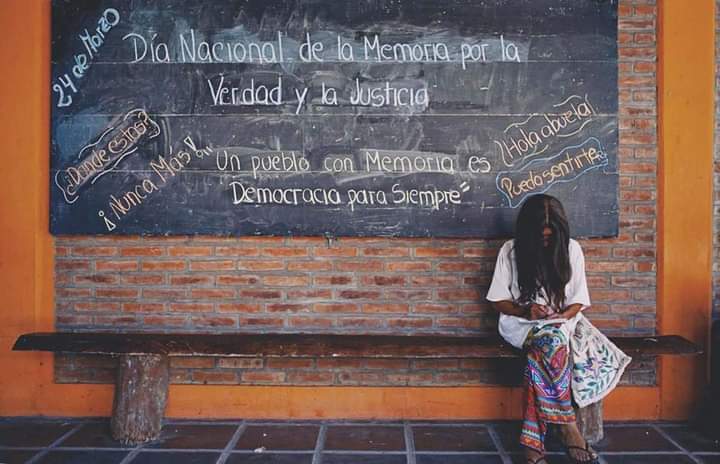 24 de Marzo
Día Nacional de la Memoria por la
Verdad y la Justicia
¿Donde estas?
¡Nunca Mas!...
"Un pueblo con Memoria es
Democracia para Siempre"
¡Hola abuela!
Puedo sentirte..